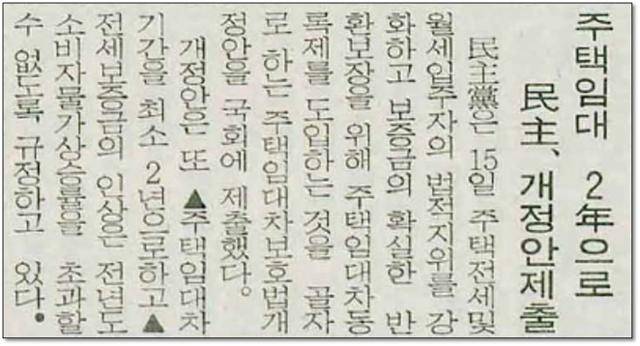 주택임대 2年으로
民主、개정안제출
民主黨은 15일 주택전세및
월세입주자의 법적지위를 강
화하고 보증금의 확실한 반
환보장을 위해 주택임대차등
록제를 도입하는 것을 골자
로 하는 주택임대차보호법개
정안을 국회에 제출했다。
개정안은 또 ▲주택임대차
기간을 최소 2년으로하고▲
전세보증금의 인상은 전년도
소비자물가상승률을 초과할
수 없도록 규정하고 있다.